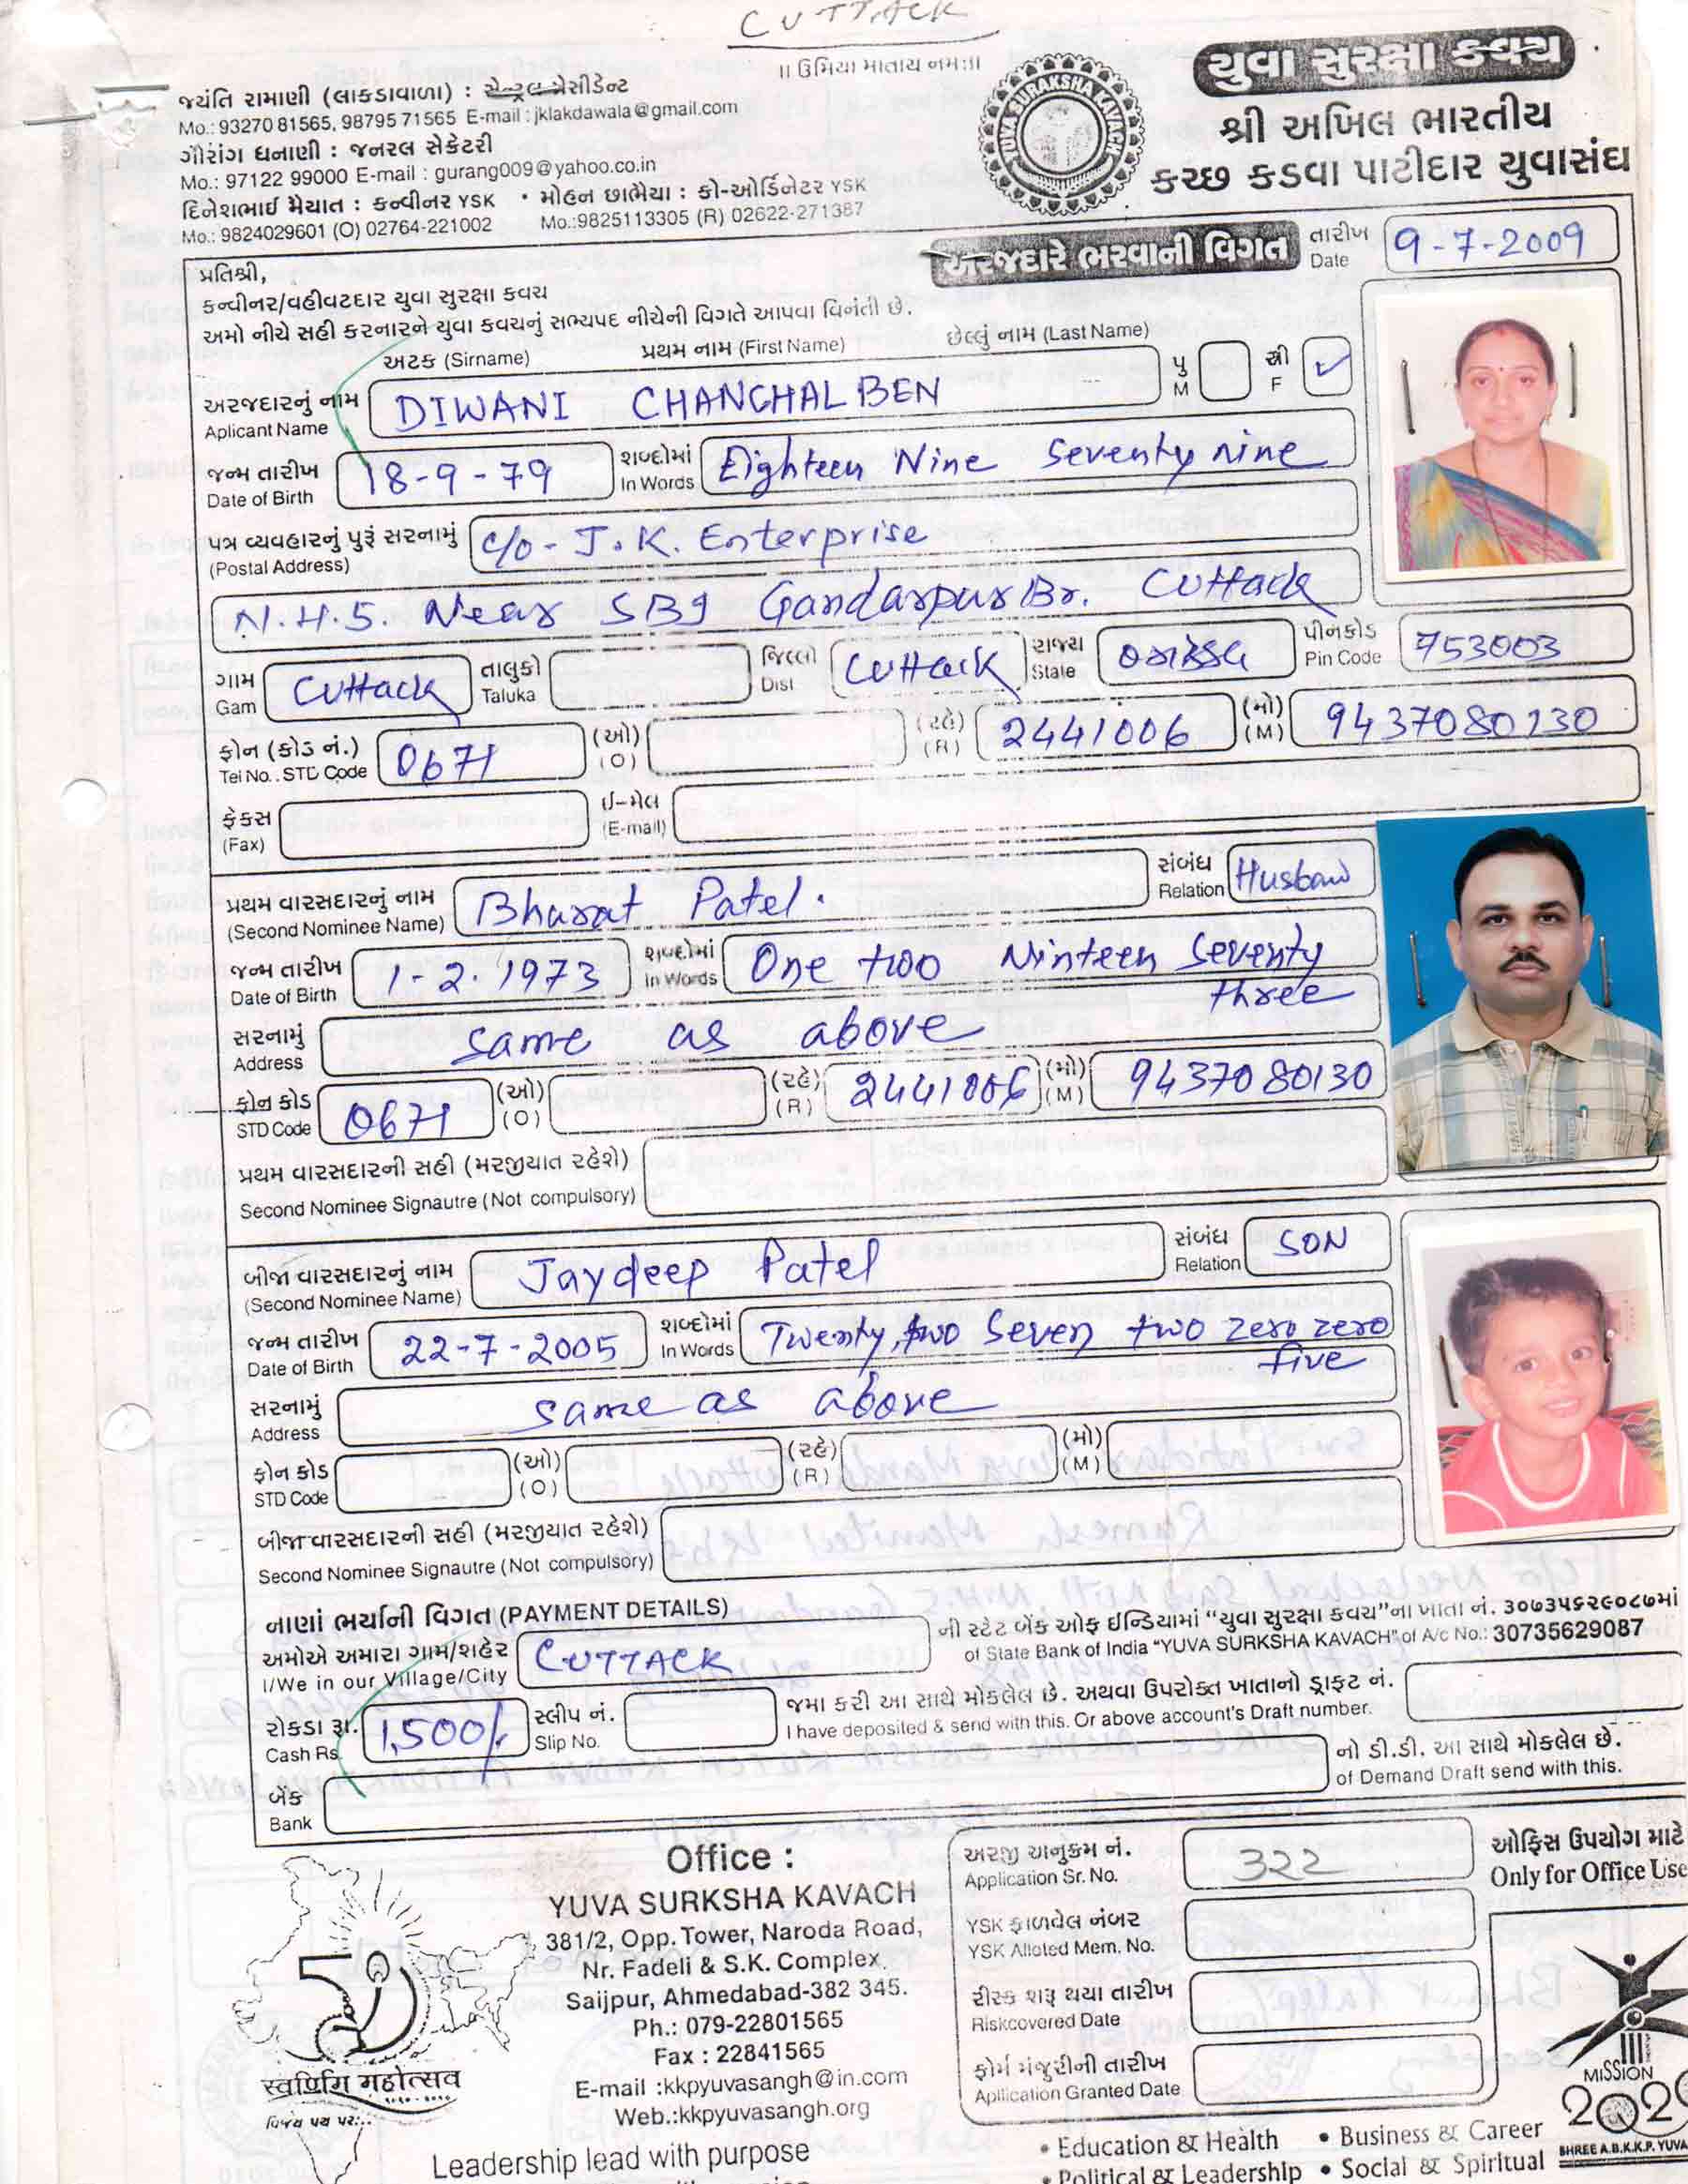 CUTTACK
|| ઉમિયા માતાય નમઃ ||
યુવા સુરક્ષા કવચ
શ્રી અખિલ ભારતીય
કચ્છ કડવા પાટીદાર યુવાસંઘ
YUVA SURAKSHA KAVACH
જયંતિ રામાણી (લાકડાવાળા) : સેન્ટ્રલ પ્રેસીડેન્ટ
Mo.: 93270 81565, 98795 71565 E-mail : jklakdawala@gmail.com
ગૌરાંગ ધનાણી : જનરલ સેક્રેટરી
Mo.: 97122 99000 E-mail : gurang009@yahoo.co.in
દિનેશભાઈ મૈયાત : કન્વીનર YSK • મોહન છાભૈયા : કો-ઓર્ડિનેટર YSK
Mo.: 9824029601 (O) 02764-221002 Mo.:9825113305 (R) 02622-271387
અરજદારે ભરવાની વિગત તારીખ Date 9-7-2009
પ્રતિશ્રી,
કન્વીનર/વહીવટદાર યુવા સુરક્ષા કવચ
અમો નીચે સહી કરનારને યુવા કવચનું સભ્યપદ નીચેની વિગતે આપવા વિનંતી છે.
અટક (Sirname) પ્રથમ નામ (First Name) છેલ્લું નામ (Last Name)
અરજદારનું નામ Aplicant Name DIWANI CHANCHALBEN પુ M સ્ત્રી F ✓
જન્મ તારીખ Date of Birth 18-9-79 શબ્દોમાં In Words Eighteen Nine Seventy nine
પત્ર વ્યવહારનું પુરૂં સરનામું (Postal Address) C/o - J.K. Enterprise
N.H.5. Near SBI Gandarpur Br. Cuttack
ગામ Gam Cuttack તાલુકો Taluka જિલ્લો Dist Cuttack રાજ્ય State Orissa પીનકોડ Pin Code 753003
ફોન (કોડ નં.) Tel No. STD Code 0671 (ઓ) (O) (રહે) (R) 2441006 (મો) (M) 9437080130
ફેક્સ (Fax) ઈ-મેલ (E-mail)
પ્રથમ વારસદારનું નામ (Second Nominee Name) Bharat Patel. સંબંધ Relation Husband
જન્મ તારીખ Date of Birth 1-2-1973 શબ્દોમાં In Words One two Ninteen Seventy
three
સરનામું Address same as above
ફોન કોડ STD Code 0671 (ઓ) (O) (રહે) (R) 2441006 (મો) (M) 9437080130
પ્રથમ વારસદારની સહી (મરજીયાત રહેશે)
Second Nominee Signautre (Not compulsory)
બીજા વારસદારનું નામ (Second Nominee Name) Jaydeep Patel સંબંધ Relation SON
જન્મ તારીખ Date of Birth 22-7-2005 શબ્દોમાં In Words Twenty, two Seven two zero zero
five
સરનામું Address same as above
ફોન કોડ STD Code (ઓ) (O) (રહે) (R) (મો) (M)
બીજા વારસદારની સહી (મરજીયાત રહેશે)
Second Nominee Signautre (Not compulsory)
નાણાં ભર્યાની વિગત (PAYMENT DETAILS)
અમોએ અમારા ગામ/શહેર I/We in our Village/City CUTTACK ની સ્ટેટ બેંક ઓફ ઈન્ડિયામાં “યુવા સુરક્ષા કવચ”ના ખાતા નં. ૩૦૭૩૫૬૨૯૦૮૭માં
of State Bank of India “YUVA SURKSHA KAVACH” of A/c No.: 30735629087
રોકડા રૂા. Cash Rs. 1,500/- સ્લીપ નં. Slip No. જમા કરી આ સાથે મોકલેલ છે. અથવા ઉપરોક્ત ખાતાનો ડ્રાફ્ટ નં.
I have deposited & send with this. Or above account's Draft number.
બેંક Bank નો ડી.ડી. આ સાથે મોકલેલ છે.
of Demand Draft send with this.
Office :
YUVA SURKSHA KAVACH
381/2, Opp. Tower, Naroda Road,
Nr. Fadeli & S.K. Complex,
Saijpur, Ahmedabad-382 345.
Ph.: 079-22801565
Fax : 22841565
E-mail :kkpyuvasangh@in.com
Web.:kkpyuvasangh.org
Leadership lead with purpose
અરજી અનુક્રમ નં. Application Sr. No. 322
YSK ફાળવેલ નંબર YSK Alloted Mem. No.
રીસ્ક શરૂ થયા તારીખ Riskcovered Date
ફોર્મ મંજુરીની તારીખ Apllication Granted Date
ઓફિસ ઉપયોગ માટે
Only for Office Use
50
स्वर्णिम महोत्सव
વિજય પથ પર...
MISSION
2020
SHREE A.B.K.K.P. YUVA
• Education & Health • Business & Career
• Political & Leadership • Social & Spiritual